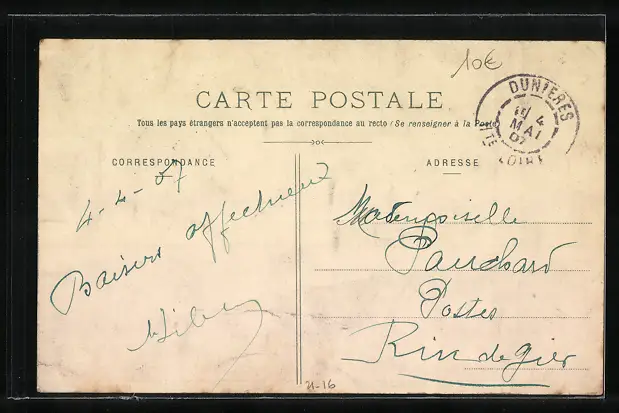 10€
CARTE POSTALE
Tous les pays étrangers n'acceptent pas la correspondance au recto (Se renseigner à la Poste
DUNIERES
4
MAI
07
HTE LOIRE
CORRESPONDANCE
ADRESSE
4-4-07
Baisers affectueux
Mademoiselle
Pauchard
Postes
Rive de Gier
H-16